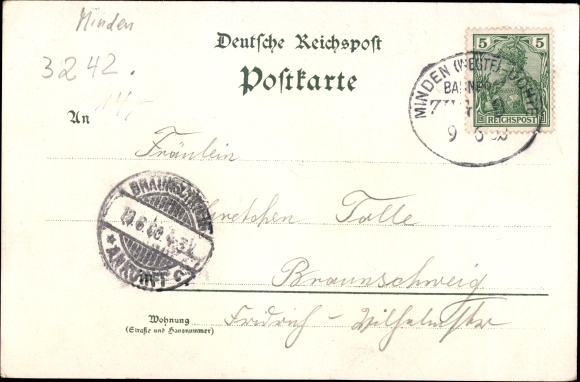 Minden
3242.
14,-
Deutsche Reichspost
Postkarte
5 5
REICHSPOST
MINDEN (WESTF)
BAHNPOST
ZUG
9 6
An
Fräulein
Gretchen Tolle
BRAUNSCHWEIG
10.6.00.
* ANKUNFT C
Braunschweig
Wohnung
(Straße und Hausnummer)
Fridrich-Wilhelmster